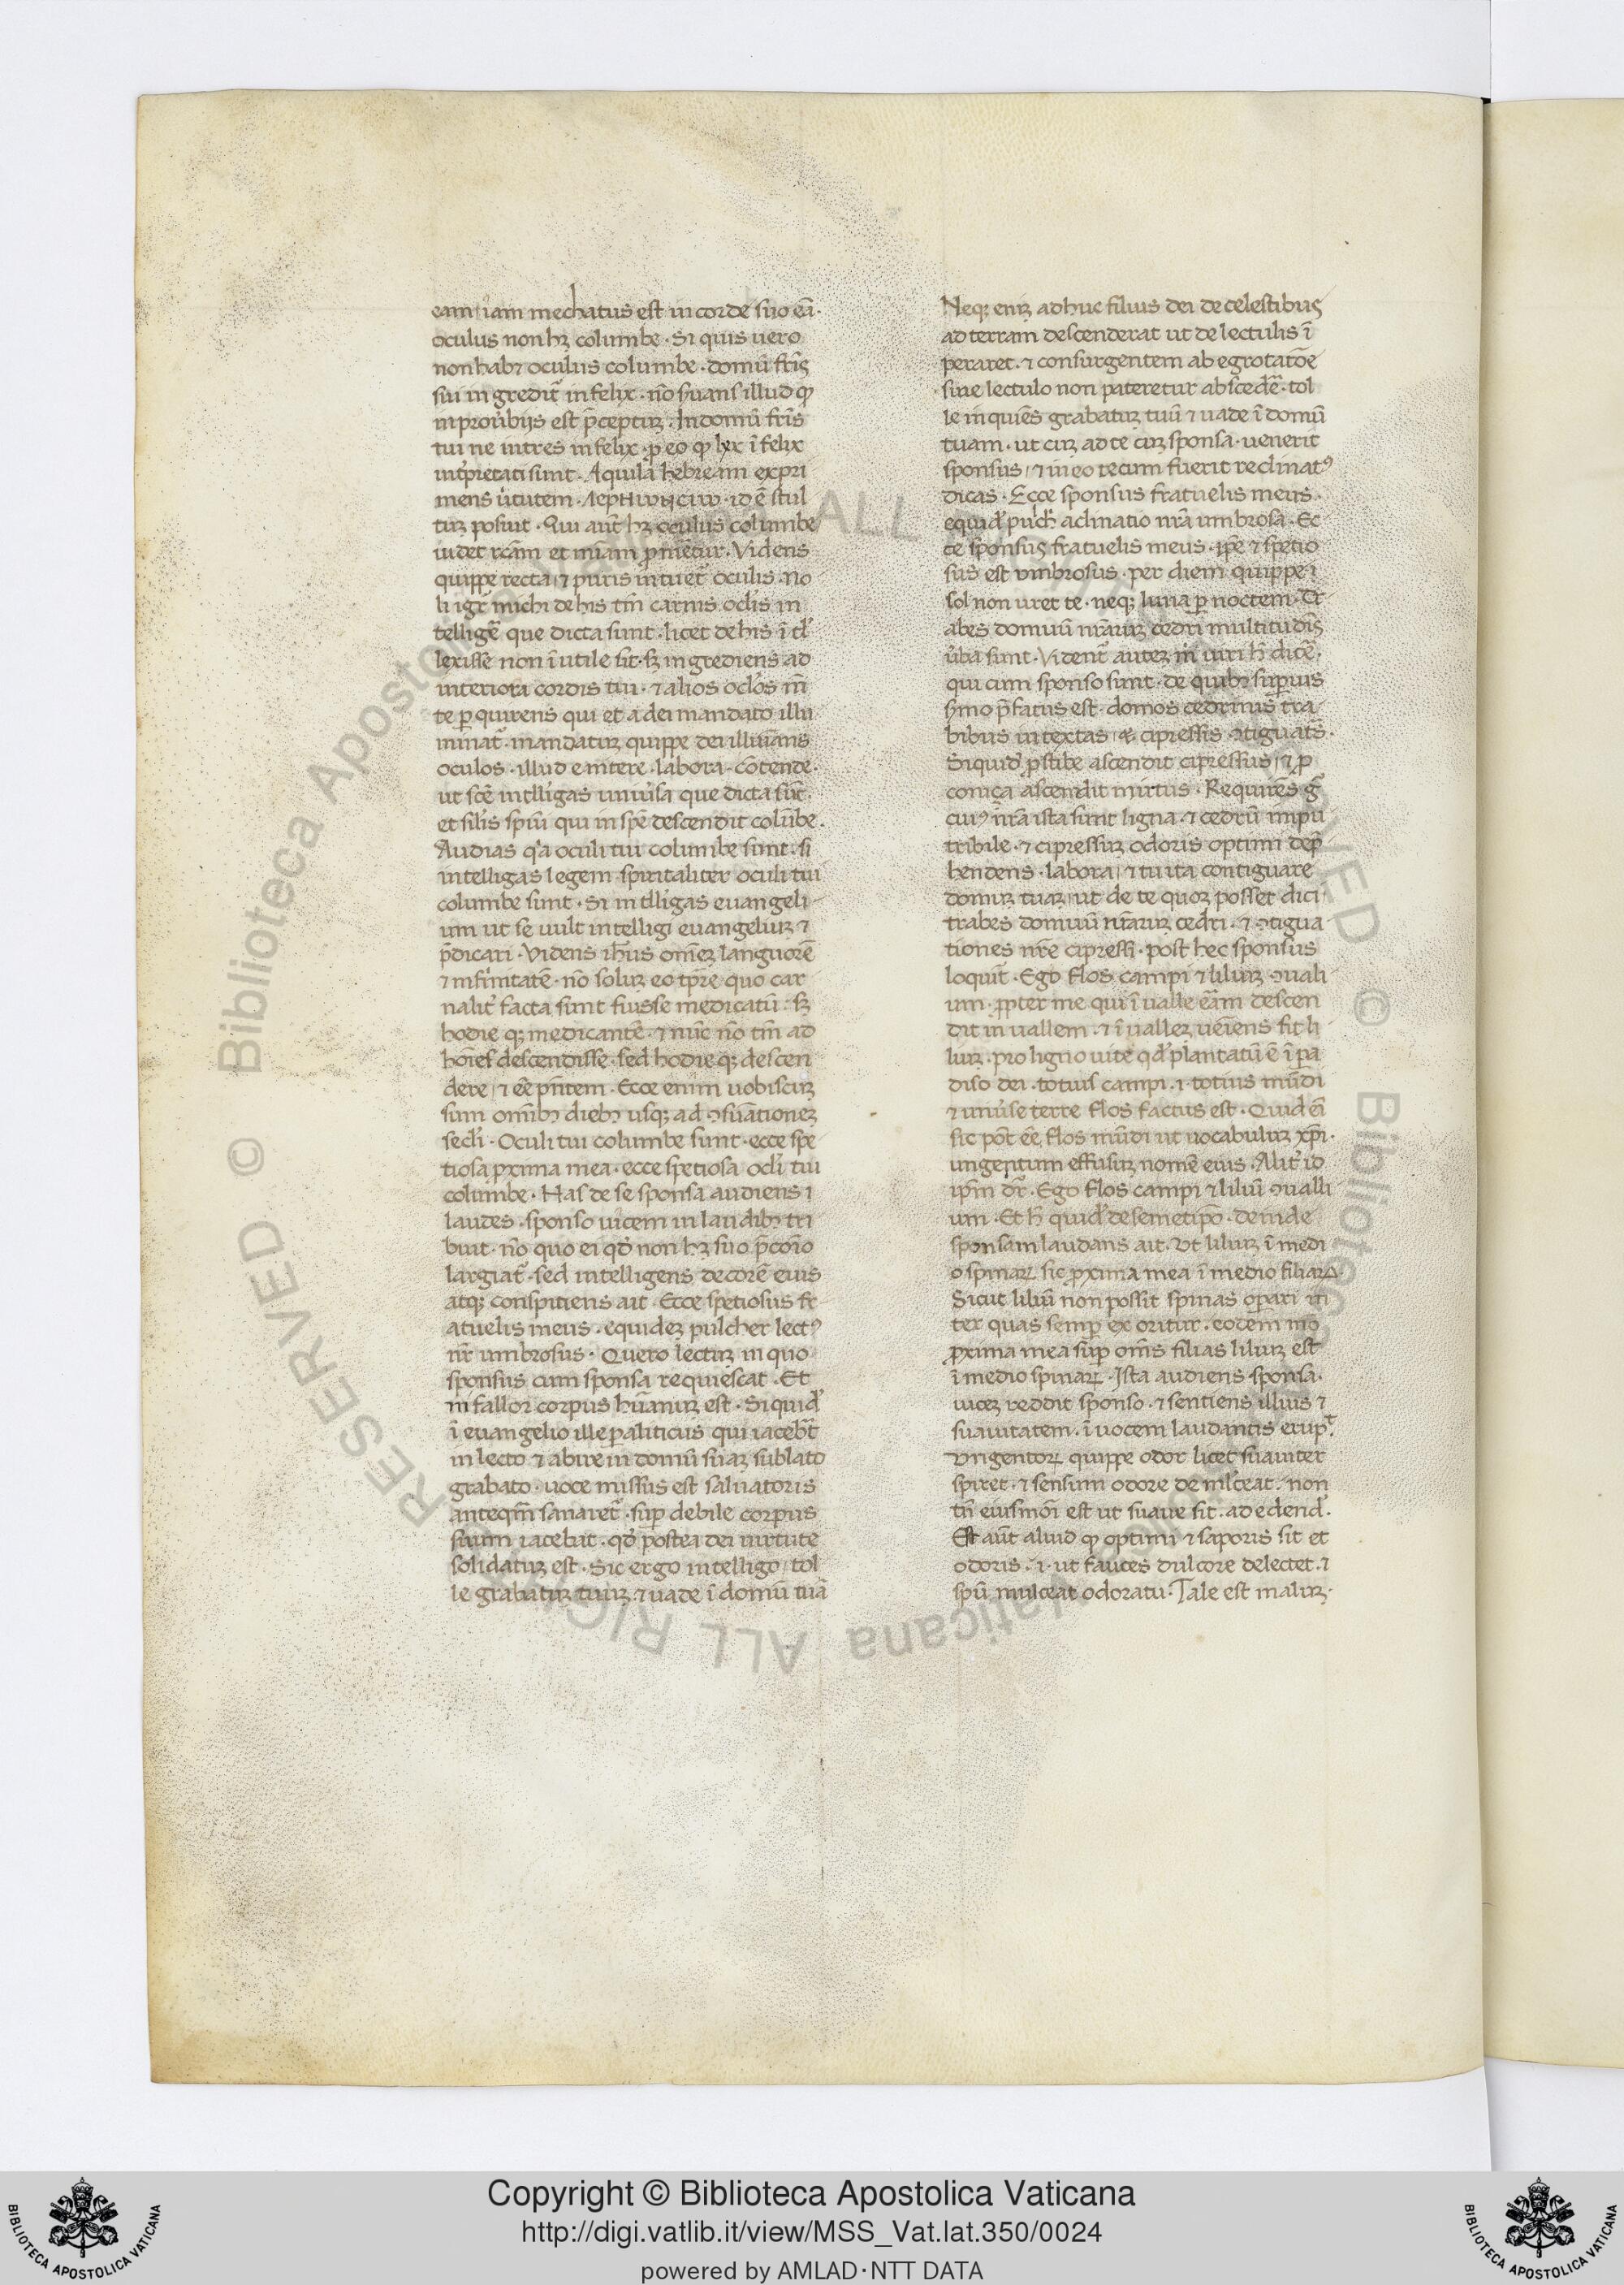 eam iam mechatus est in corde suo eā·
oculus non hꝫ columbe · Si quis uero
non habꝫ oculus columbe · domū fr̄is
sui ingredit᷑ infelix · nō suans illud ꝙ
in prouͥbijs est p̄ceptuꝫ · In domū fr̄is
tui ne intres infelix · ꝓ eo ꝙ lxx īfelix
int͛pretati sunt · Aquila hebream expri
mens uͥtutem · id ē stul
tuꝫ posuit · Qui aūt hꝫ oculus columbe
uidet rc̄am et mīam ꝓmēetur · Videns
quippe recta ⁊ puris intuet᷑ oculis · No
li igr̄ michi de his tm̄ carnis ocl̄is in
tellige᷑ que dicta sunt · licet de his ī
lexisse non īutile sit · sꝫ ingrediens ad
interiora cordis tui · ⁊ alios ocl̄os in̄
te ꝑquirens qui et a dei mandato illu
minat᷑ · mandatuꝫ quippe dei illuīans
oculos · illud enitere · labora · cōtende ·
ut scē intlligas uniuͥsa que dicta sūt ·
et sil̄is spiū qui in spē descendit colūbe ·
Audias q̄a oculi tui columbe sunt · si
intelligas legem spiritaliter oculi tui
columbe sunt · Si intlligas euangeli
um ut se uult intelligi euangeliuꝫ ⁊
p̄dicari · Videns ih̄us om̄eꝫ languorē
⁊ infirmitatē · nō soluꝫ eo tp̄re quo car
nalit᷑ facta sunt fuisse medicatū · sꝫ
hodie qꝫ medicantē · ⁊ nūc nō tm̄ ad
hōies descendisse · sed hodie qꝫ descen
dere ⁊ eē pn̄tem · Ecce enim uobiscuꝫ
sum om̄ibꝫ diebꝫ usqꝫ ad ꝯsūationeꝫ
secl̄i · Oculi tui columbe sunt · ecce spe
tiosa ꝓxima mea · ecce spetiosa ocl̄i tui
columbe · Has de se sponsa audiens
laudes · sponso uicem in laudibꝫ tri
buit · nō quo ei qd̓ non hꝫ suo p̄conio
largiat᷑ · sed intelligens decorē eius
atqꝫ conspitiens ait · Ecce spetiosus fr
atuelis meus · equideꝫ pulcher lectꝰ
nr̄ umbrosus · Quero lectuꝫ in quo
sponsus cum sponsa requiescat · Et
ni fallor corpus hūanuꝫ est · Siquid̓
ī euangelio ille paliticus qui iaceb᷑t
in lecto ⁊ abire in domū suaꝫ sublato
grabato · uoce missus est saluatoris
anteqm̄ sanaret᷑ · suꝑ debile corpus
suum iacebat · qd̓ postea dei uirtute
solidatuꝫ est · Sic ergo intelligo tol
le grabatuꝫ tuuꝫ ⁊ uade ī domū tuā
Neqꝫ eniꝫ adhuc filius dei de celestibus
ad terram descenderat ut de lectulis ī
peraret · ⁊ consurgentem ab egrotatōe
sine lectulo non pateretur abscede᷑ · tol
le inquiēs grabatuꝫ tuū ⁊ uade ī domū
tuam · ut cuꝫ ad te cuꝫ sponsa uenerit
sponsus ⁊ in eo tecum fuerit reclinatꝰ
dicas · Ecce sponsus fratuelis meus ·
equid̓ pulch̓ aclinatio nr̄a umbrosa · Ec
ce sponsus fratuelis meus · ip̄e ⁊ spetio
sus est vmbrosus · per diem quippe
sol non uret te · neqꝫ luna ꝑ noctem · Tr
abes domuū nr̄aruꝫ cedri multitudīs
uͥba sunt · Vident᷑ auteꝫ m̄ uiri h̄ dice᷑ ·
qui cum sponso sunt · de quibꝫ suꝑius
smo p̄fatus est · domos cedrinis tra
bibus intextas ⁊ cipressis ꝯtiguatis ·
Siquid̓ ꝓ stibe ascendit cipressus ⁊ ꝓ
coniça ascendit mirtus · Requirēs g͛
cuiꝰ nr̄a ista sunt ligna · ⁊ cedrū impu
tribile · ⁊ cipressuꝫ odoris optimi dep̄
hendens · labora ⁊ tu ita contiguare
domuꝫ tuaꝫ ut de te quoꝫ posset dici
trabes domuū nr̄aruꝫ cedri · ⁊ ꝯtigua
tiones nr̄e cipressi · post hec sponsus
loquit᷑ · Ego flos campi ⁊ liliuꝫ ꝯuali
um · ꝓpter me qui ī ualle eām descen
dit in uallem · ⁊ ī ualleꝫ ueīens fit li
liuꝫ · pro ligno uite qd̓ plantatū ē ī pa
diso dei · totius campi · i · totius mūdi
⁊ uniuͥse terre flos factus est · Quid eī
sic pōt eē flos mūdi ut uocabuluꝫ xp̄i ·
ungentum effusuꝫ nomē eius · Alit᷑ id
ip̄m dr̄ · Ego flos campi ⁊ liliū ꝯualli
um · Et h̄ quid̓ de semetip̄o · deinde
sponsam laudans ait · Vt liliuꝫ ī medi
o spinaꝝ sic ꝓxima mea ī medio filiaꝝ ·
Sicut liliū non possit spinas oꝑari in
ter quas semꝑ exoritur · eodem mō
ꝓxima mea suꝑ om̄s filias liliuꝫ est
ī medio spinaꝝ · Ista audiens sponsa ·
uiceꝫ reddit sponso · ⁊ sentiens illius ⁊
suauitatem · ī uocem laudantis erupͭ ·
Vngentoꝝ quippe odor licet suauiter
spiret · ⁊ sensum odore demlceat · non
tn̄ eiusmōi est ut suaue sit · ad edend̓ ·
Est aūt aliud ꝙ optimi ⁊ saporis sit et
odoris · i · ut fauces dulcore delectet · ⁊
spū mulceat odoratu · Tale est maluꝫ ·
© Biblioteca Apostolica Vaticana ALL RIGHTS RESERVED
Copyright © Biblioteca Apostolica Vaticana
http://digi.vatlib.it/view/MSS_Vat.lat.350/0024
powered by AMLAD·NTT DATA
BIBLIOTECA APOSTOLICA VATICANA
BIBLIOTECA APOSTOLICA VATICANA